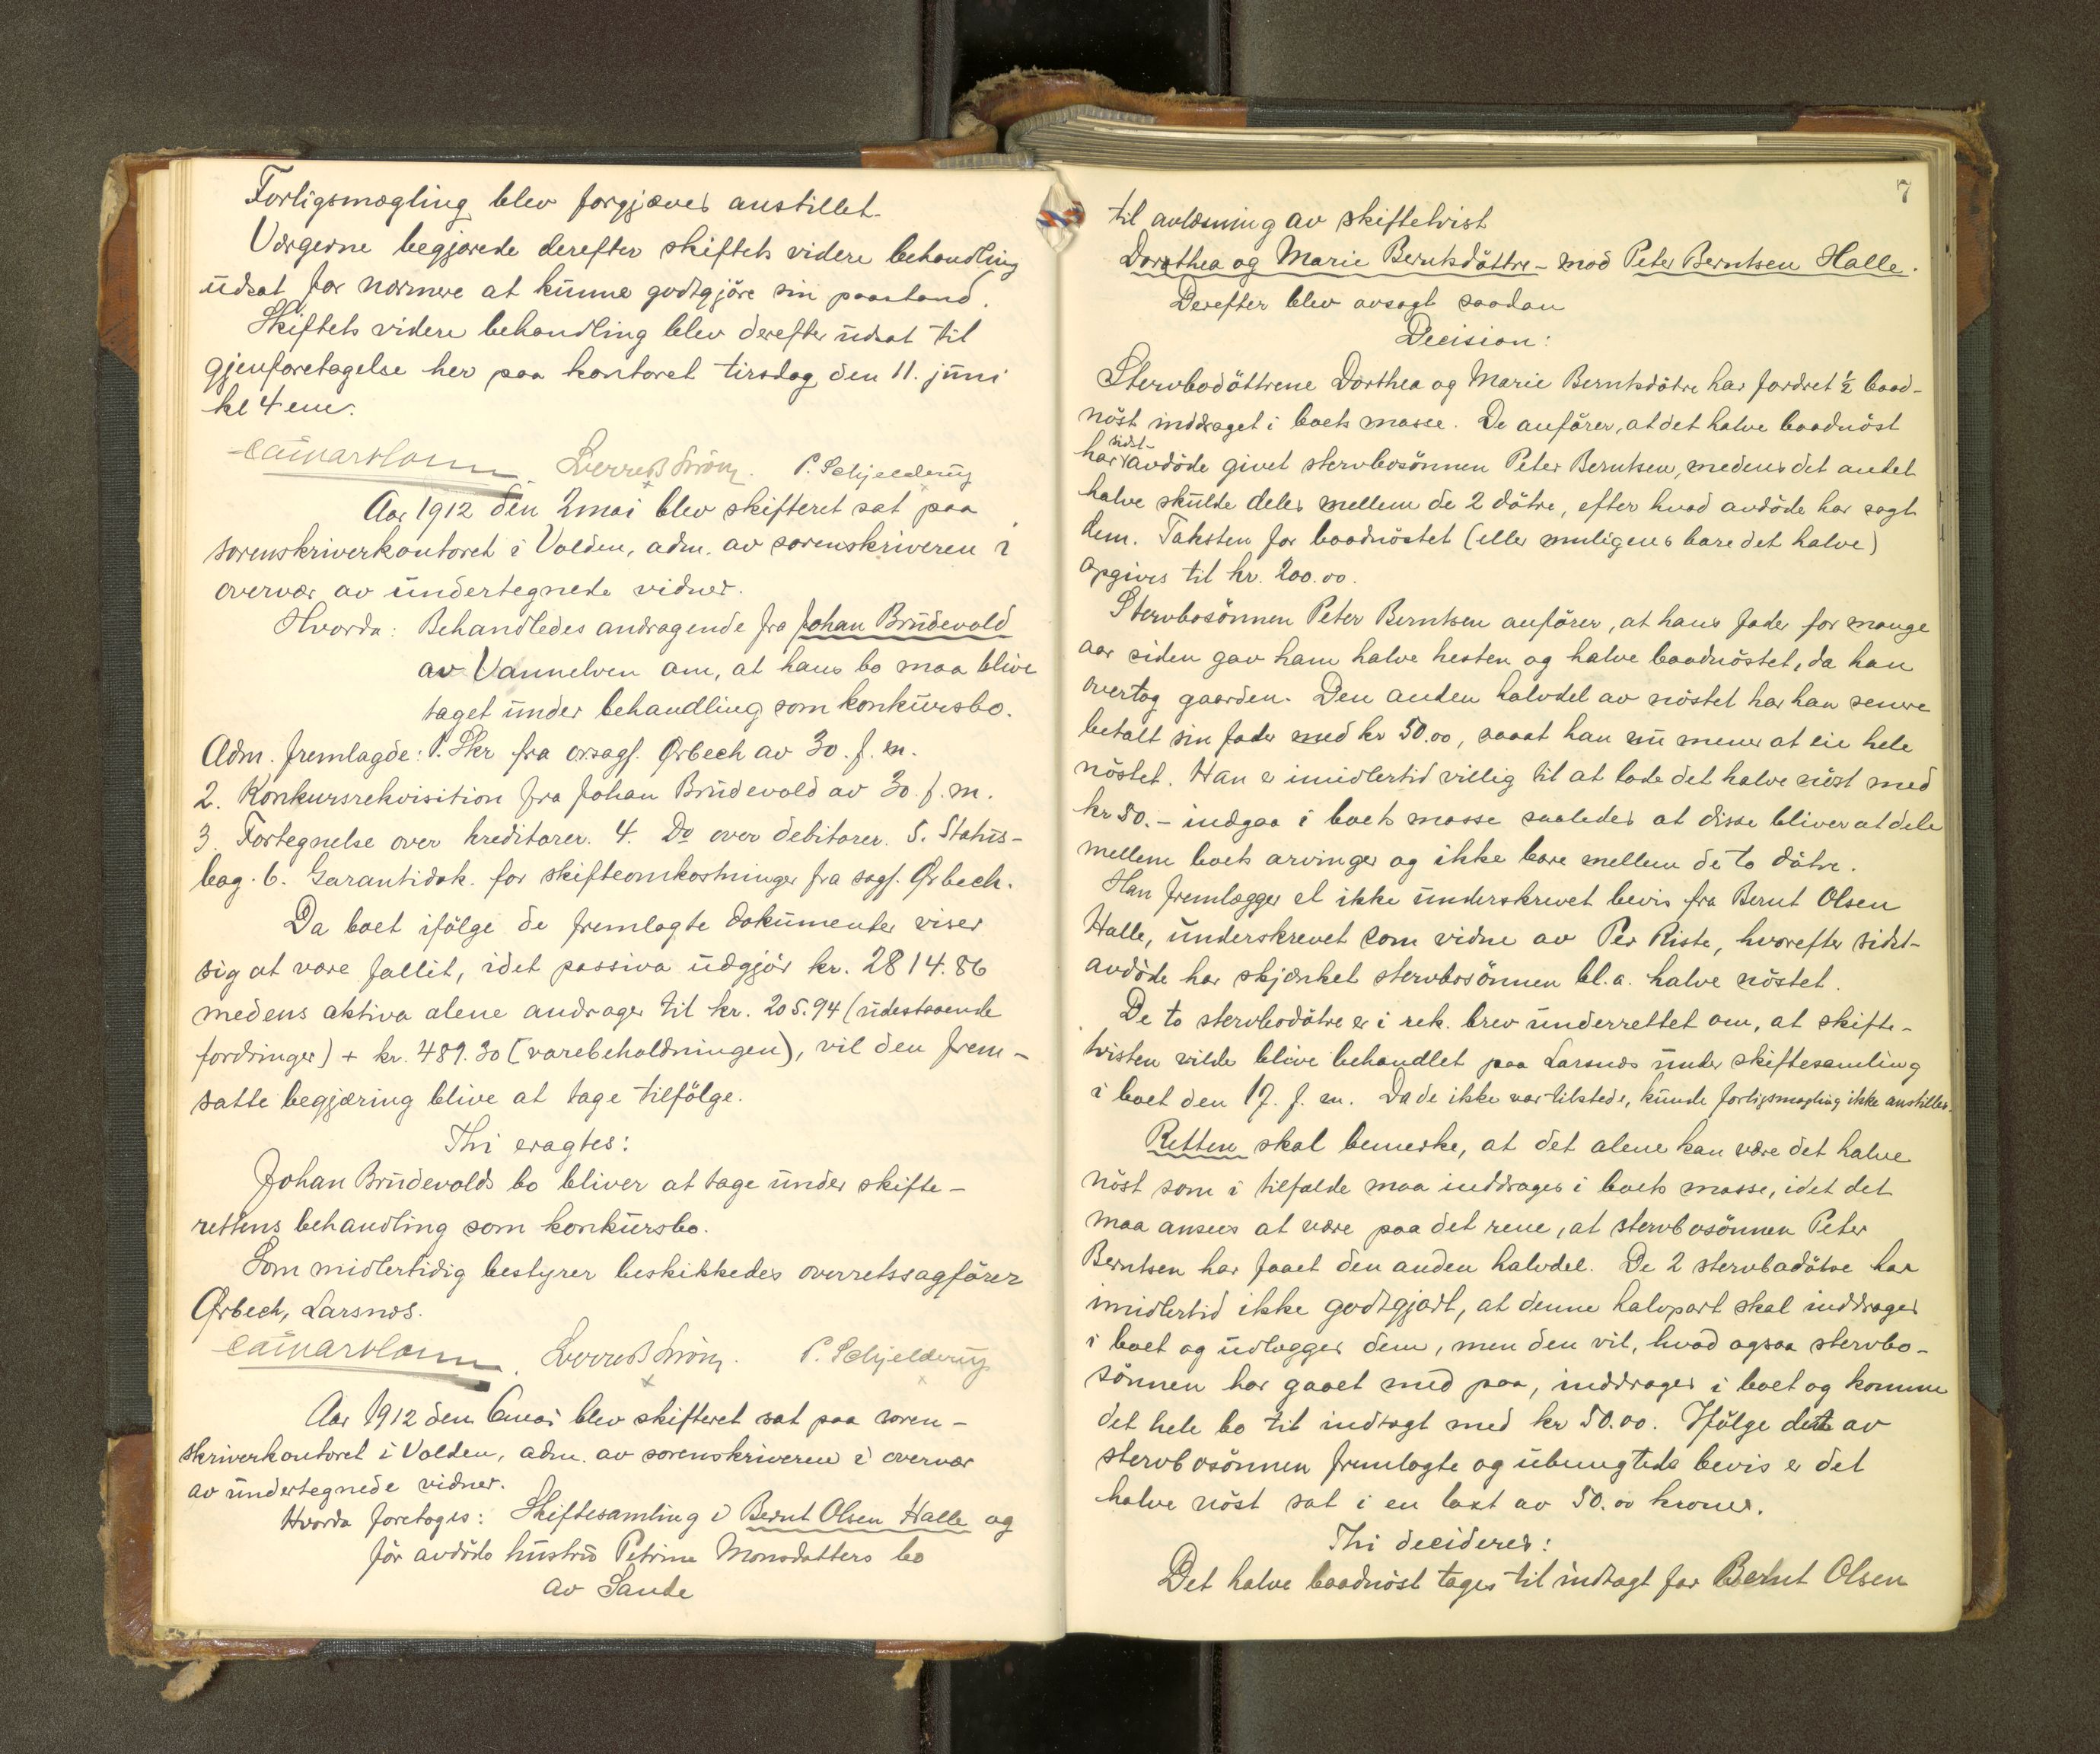 Forligsmægling blev forgjæves anstillet.
Værgerne begjærede derefter skiftets videre behandling
udsat for nærmere at kunne godtgjöre sin paastand.
Skiftets videre behandling blev derefter udsat til
gjenforetagelse her paa kontoret tirsdag den 11. juni
kl 4 em.
Sverre B Ström. P. Schjelderup
Aar 1912 den 2 mai blev skifteret sat paa
sorenskriverkontoret i Volden, adm. av sorenskriveren i
overvær av undertegnede vidner.
Hvorda: Behandledes andragende fra Johan Brudevold
av Vannelven om, at hans bo maa blive
taget under behandling som konkursbo.
Adm. fremlagde: 1. Skr fra orsagf. Ørbech av 30. f. m.
2. Konkursrekvisition fra Johan Brudevold av 30. f. m.
3. Fortegnelse over kreditorer. 4. Do over debitorer. 5. Status-
bog. 6. Garantidok. for skifteomkostninger fra sagf. Ørbech.
Da boet ifölge de fremlagte dokumenter viser
sig at være fallit, idet passiva udgjör kr. 2814.86
medens aktiva alene andrager til kr. 205.94 (udestaaende
fordringer) + kr. 489.30 (varebeholdningen), vil den frem-
satte begjæring blive at tage tilfölge.
Thi eragtes:
Johan Brudevolds bo bliver at tage under skifte-
rettens behandling som konkursbo.
Som midlertidig bestyrer beskikkedes overretssagförer
Ørbech, Larsnes.
Sverre B Ström. P. Schjelderup
Aar 1912 den 6 mai blev skifteret sat paa soren-
skriverkontoret i Volden, adm. av sorenskriveren i overvær
av undertegnede vidner.
Hvorda foretoges: Skiftesamling i Bernt Olsen Halle og
för avdöde hustru Petrine Monsdatters bo
av Sande
7
til avlæsning av skiftetvist
Dorothea og Marie Berntsdöttre - mod Peter Berntsen Halle.
Derefter blev avsagt saadan
Decision:
Stervbodöttrene Dorthea og Marie Berntsdötre har fordret ½ baad-
nöst inddraget i boets masse. De anförer, at det halve baadnöst
har sidst-avdöde givet stervbosönnen Peter Berntsen, medens det andet
halve skulde deles mellem de 2 dötre, efter hvad avdöde har sagt
dem. Taksten for baadnöstet (eller muligens bare det halve)
opgives til kr. 200.00.
Stervbosönnen Peter Berntsen anförer, at hans fader for mange
aar siden gav ham halve hesten og halve baadnöstet, da han
overtog gaarden. Den anden halvdel av nöstet har han senere
betalt sin fader med kr 50.00, saaat han nu mener at eie hele
nöstet. Han er imidlertid villig til at lade det halve nöst med
kr 50.- indgaa i boets masse saaledes at disse bliver at dele
mellem boets arvinger og ikke bare mellem de to dötre.
Han fremlægger et ikke underskrevet bevis fra Bernt Olsen
Halle, underskrevet som vidne av Per Riste, hvorefter sidst-
avdöde har skjænket stervbosönnen bl.a. halve nöstet.
De to stervbodötre er i rek. brev underrettet om, at skifte-
tvisten vilde blive behandlet paa Larsnes under skiftesamling
i boet den 17. f. m. Da de ikke var tilstede, kunde forligsmægling ikke anstilles.
Retten skal bemerke, at det alene kan være det halve
nöst som i tilfælde maa inddrages i boets masse, idet det
maa ansees at være paa det rene, at stervbosönnen Peter
Berntsen har faaet den anden halvdel. De 2 stervbodötre har
imidlertid ikke godtgjort, at denne halvpart skal inddrages
i boet og udlægges dem, men den vil, hvad ogsaa stervbo-
sönnen har gaaet med paa, inddrages i boet og komme
det hele bo til indtægt med kr 50.00. Ifölge det av
stervbosönnen fremlagte og ubenegtede bevis er det
halve nöst sat i en takst av 50.00 kroner.
Thi decideres:
Det halve baadnöst tages til indtægt for Bernt Olsen